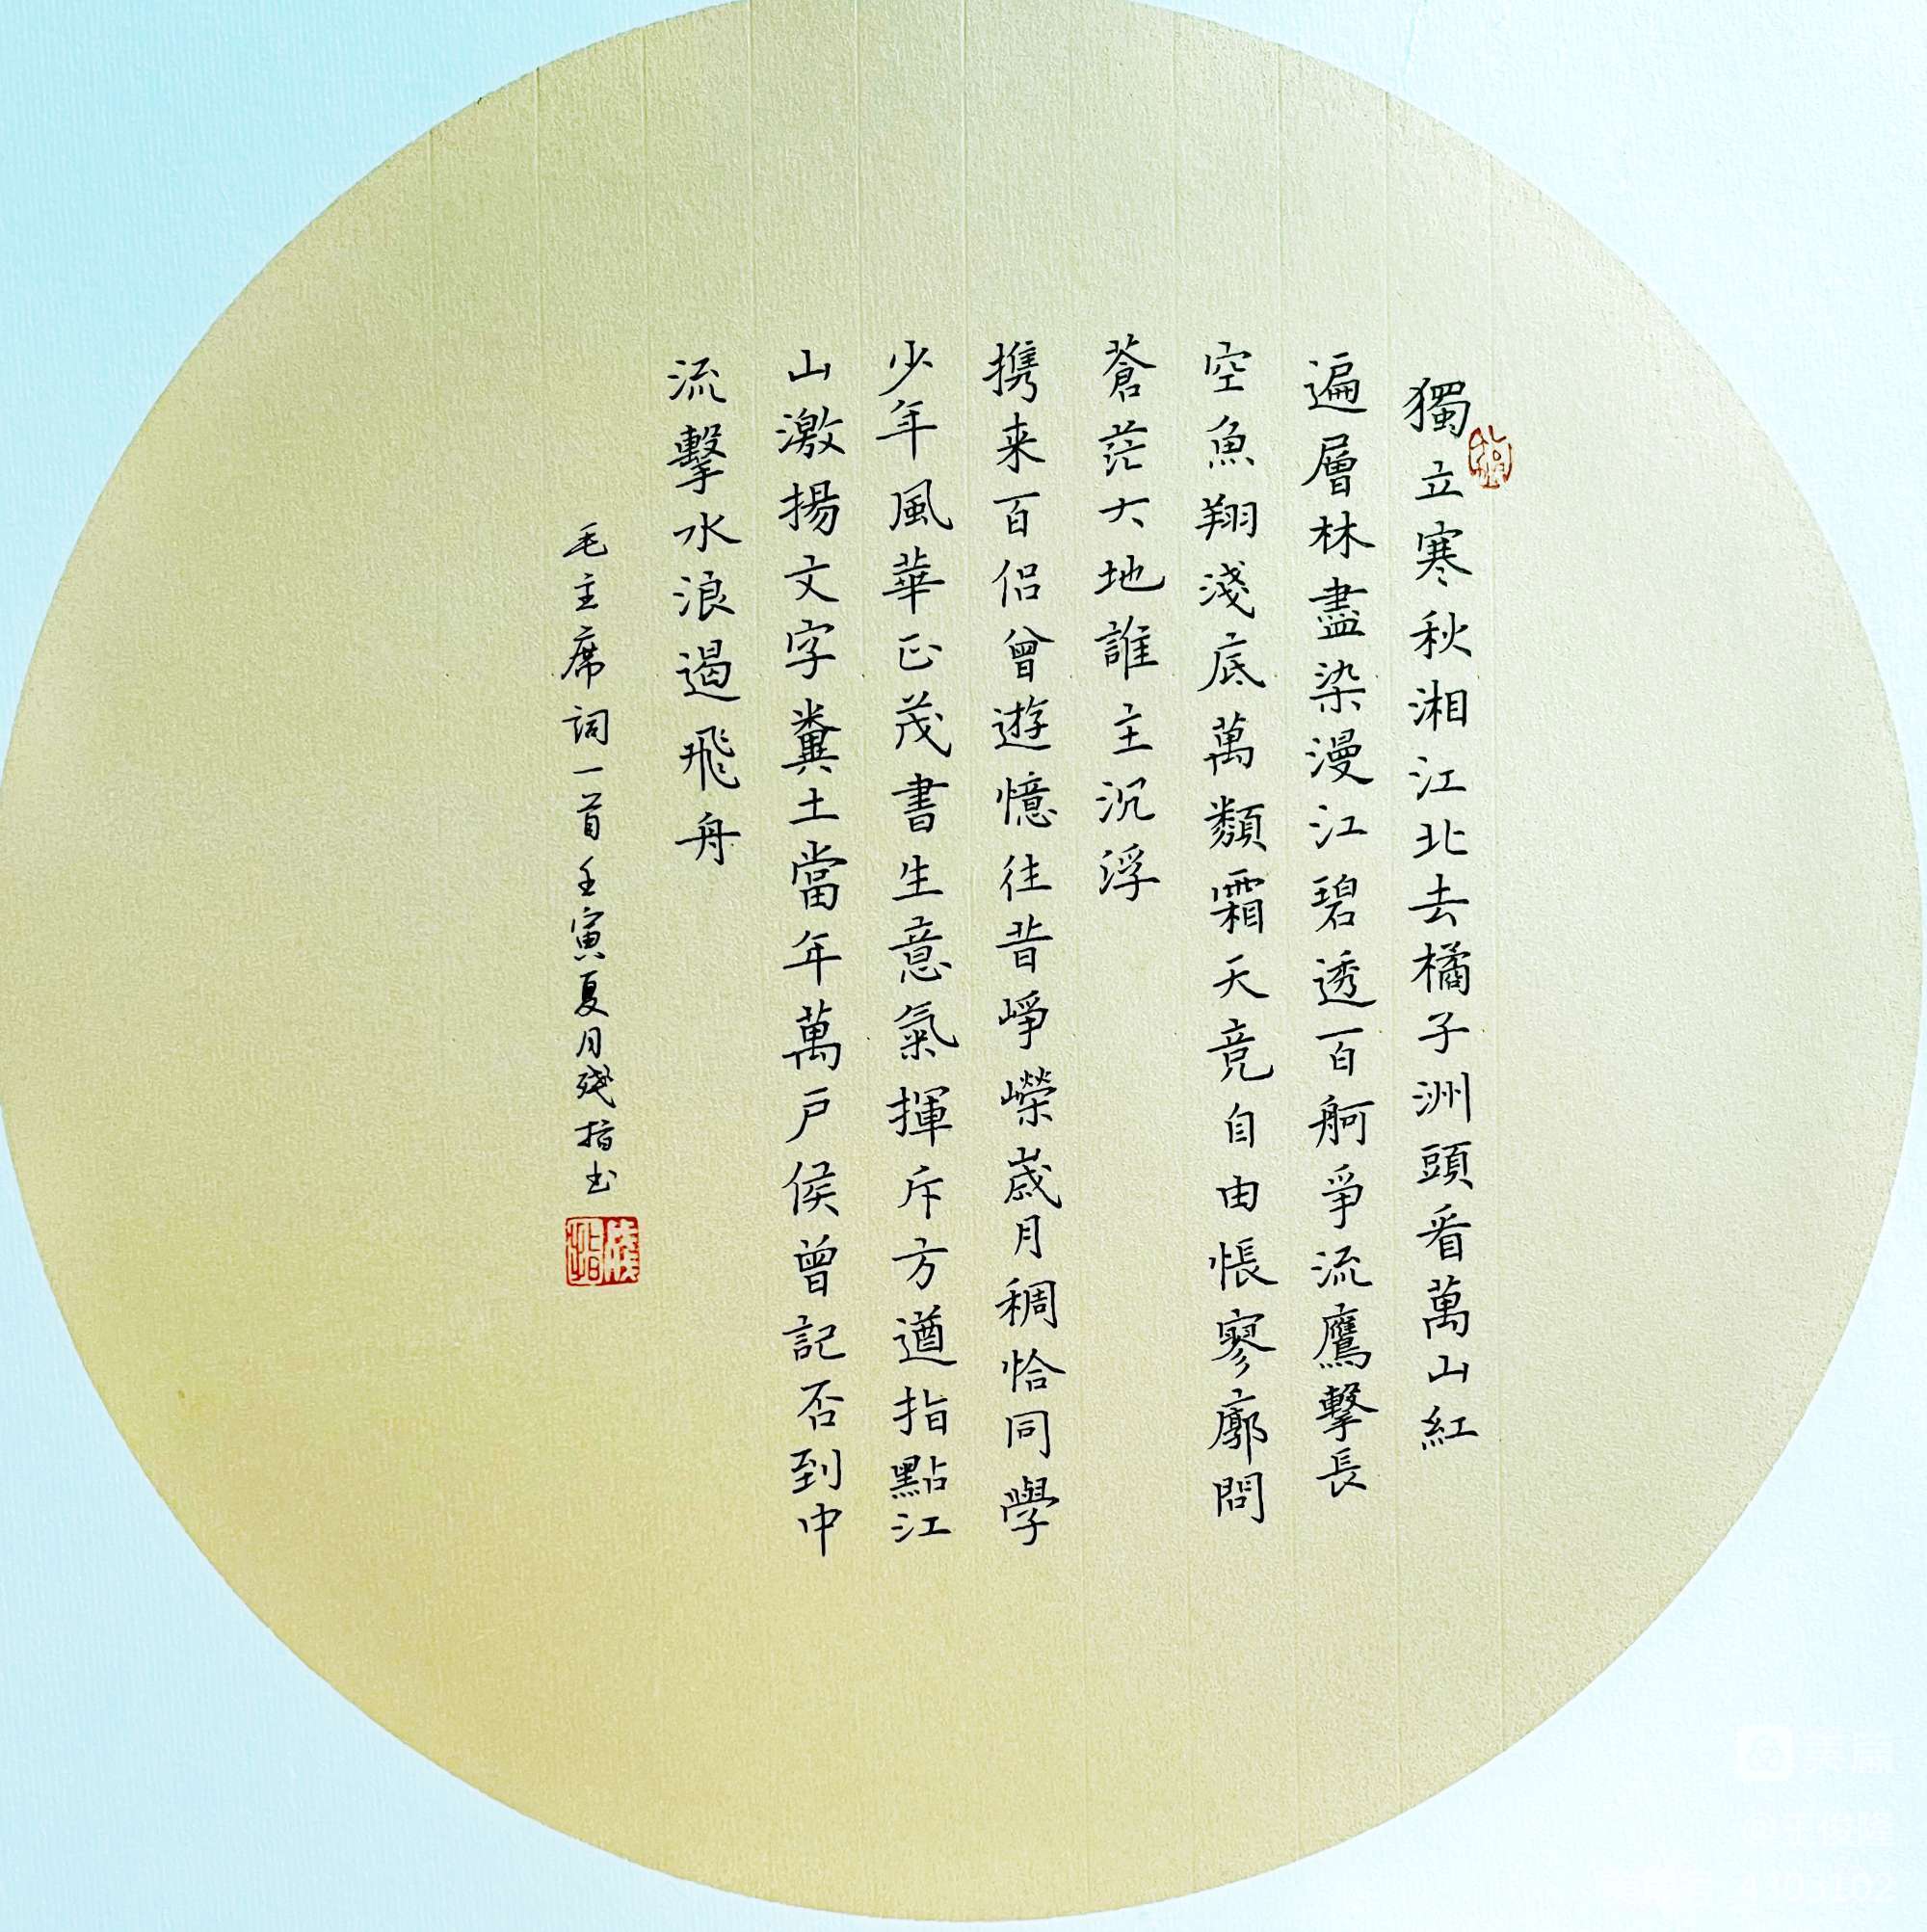 獨立寒秋湘江北去橘子洲頭看萬山紅
遍層林盡染漫江碧透百舸爭流鷹擊長
空魚翔淺底萬類霜天竞自由悵寥廓問
蒼茫大地誰主沉浮
携来百侣曾遊憶往昔崢嶸歲月稠恰同學
少年風華正茂書生意氣揮斥方遒指點江
山激揚文字糞土當年萬戶侯曾記否到中
流擊水浪遏飛舟
毛主席詞一首壬寅夏月残指书